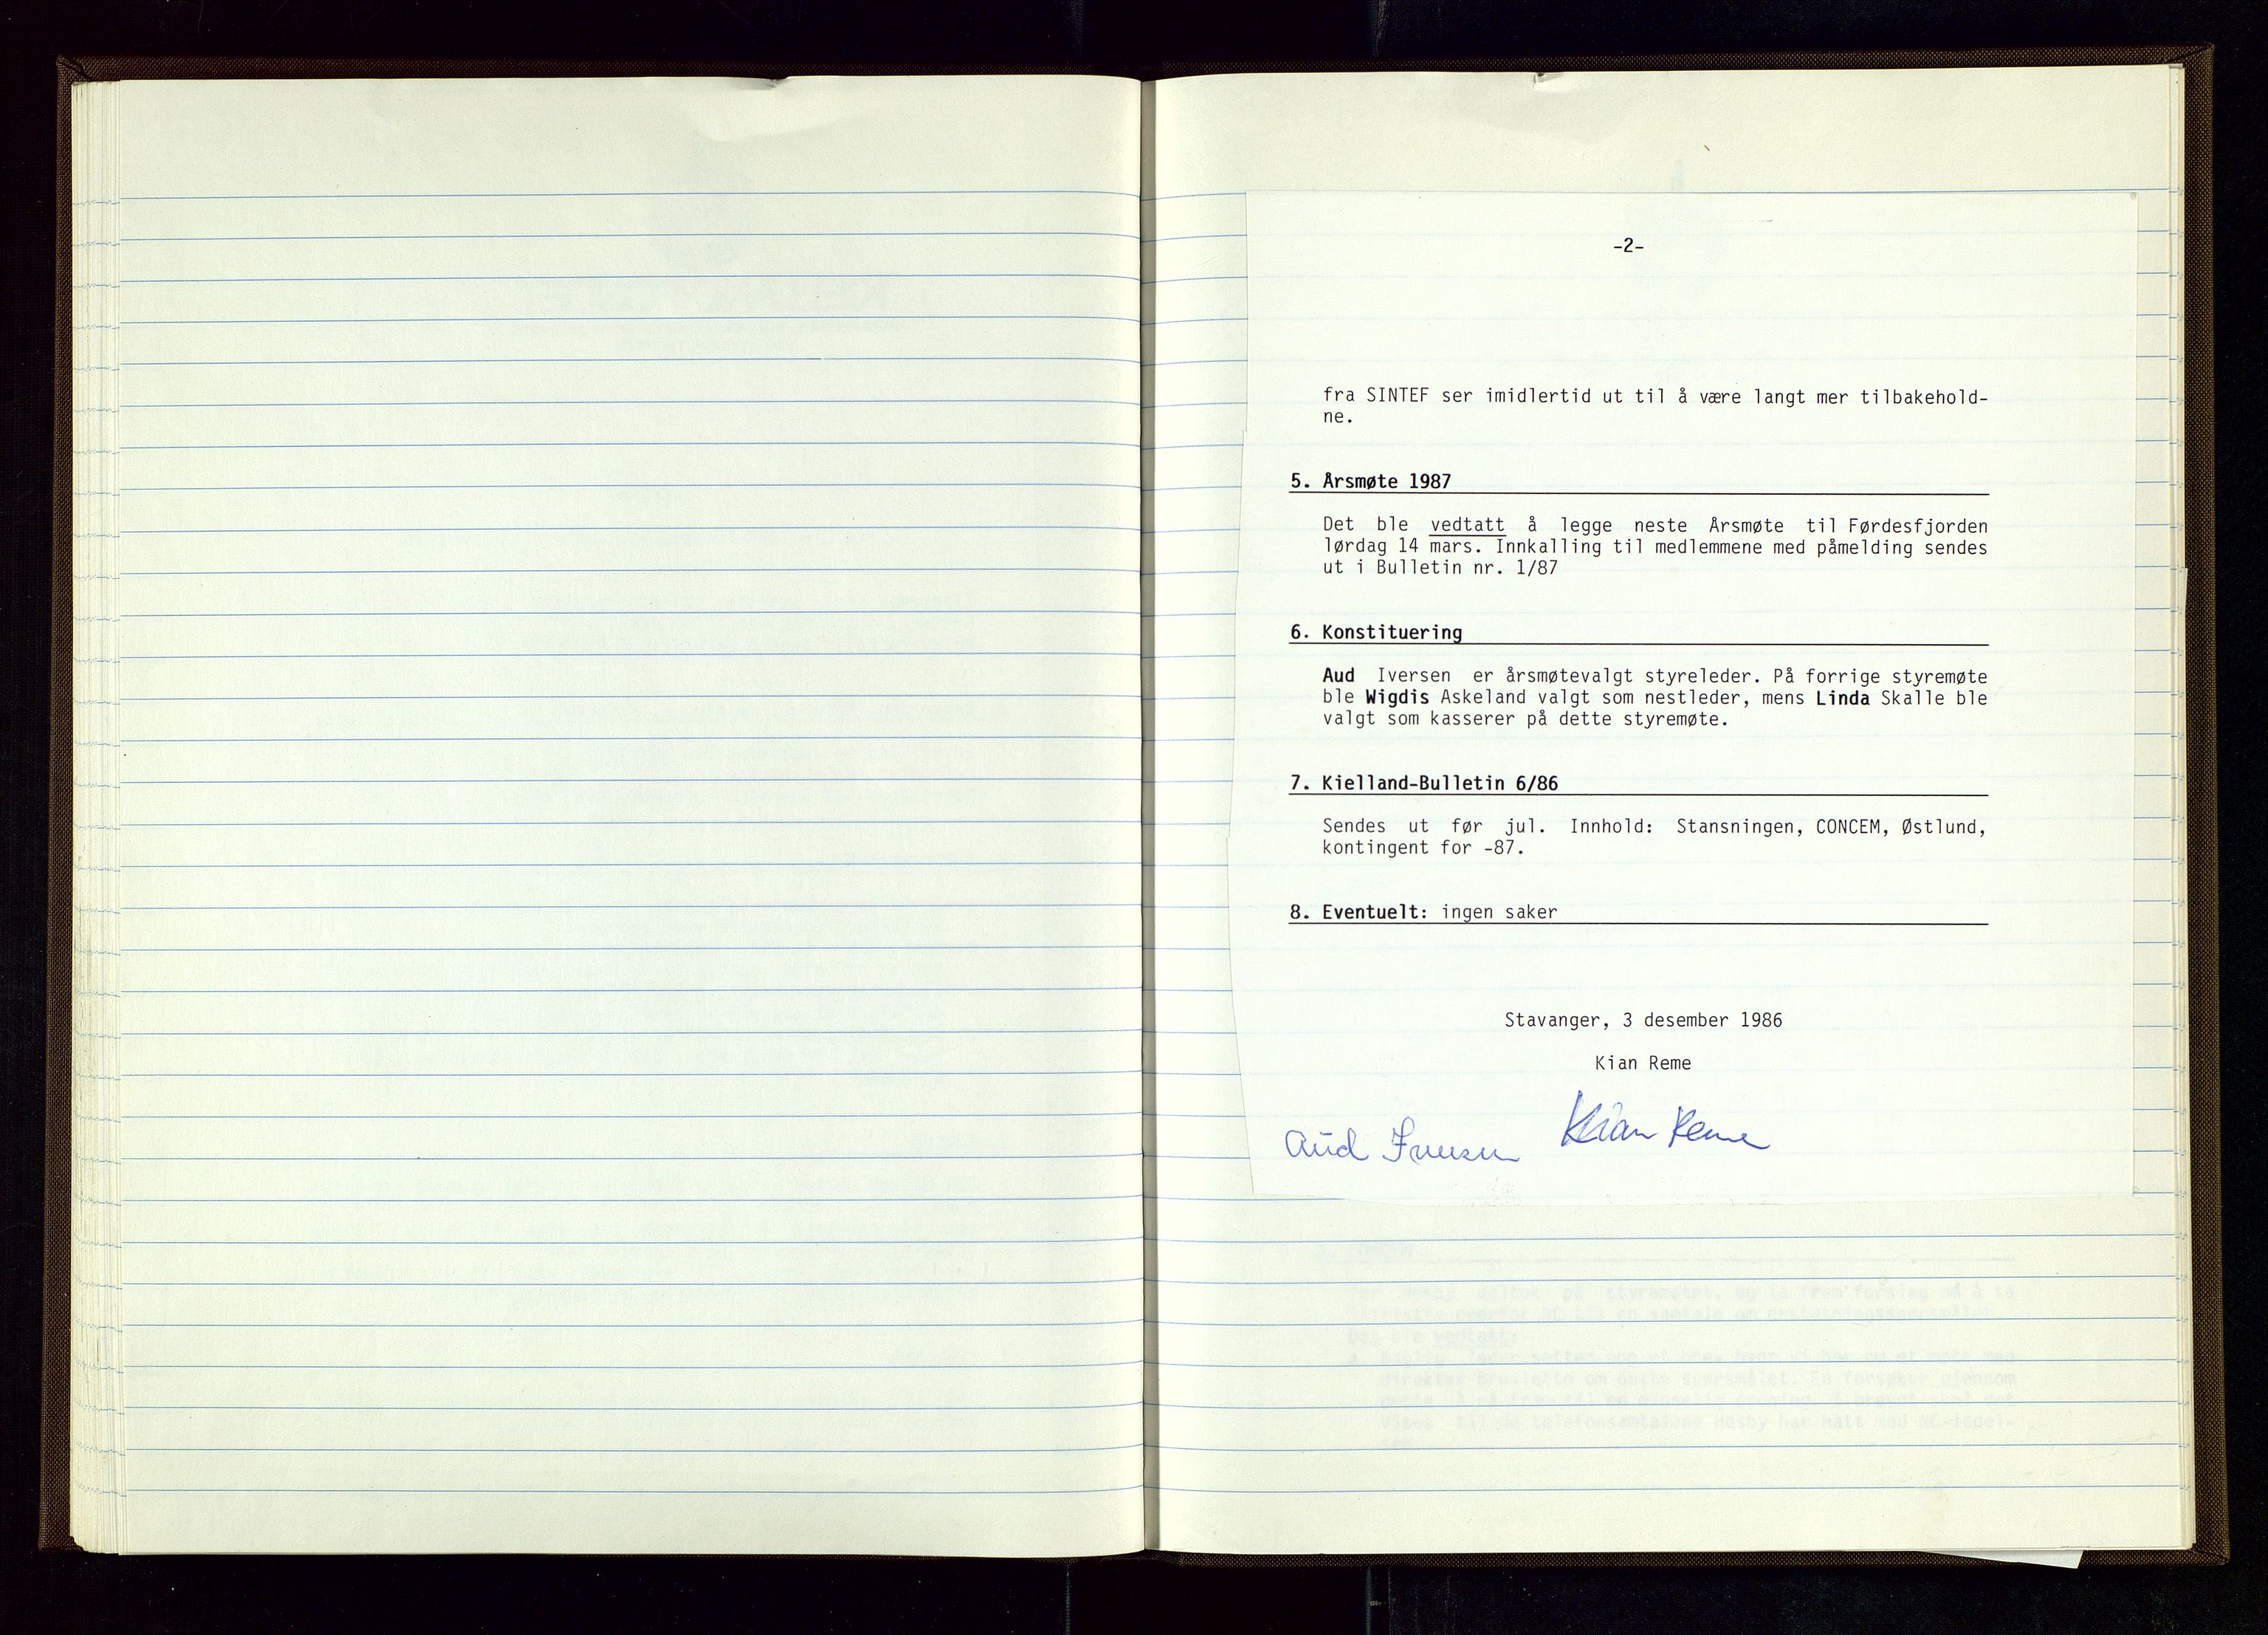 -2-
fra SINTEF ser imidlertid ut til å være langt mer tilbakehold-
ne.
5. Årsmøte 1987
Det ble vedtatt å legge neste Årsmøte til Førdesfjorden
lørdag 14 mars. Innkalling til medlemmene med påmelding sendes
ut i Bulletin nr. 1/87
6. Konstituering
Aud Iversen er årsmøtevalgt styreleder. På forrige styremøte
ble Wigdis Askeland valgt som nestleder, mens Linda Skalle ble
valgt som kasserer på dette styremøte.
7. Kielland-Bulletin 6/86
Sendes ut før jul. Innhold: Stansningen, CONCEM, Østlund,
kontingent for -87.
8. Eventuelt: ingen saker
Stavanger, 3 desember 1986
Kian Reme
Aud Iversen Kian Reme